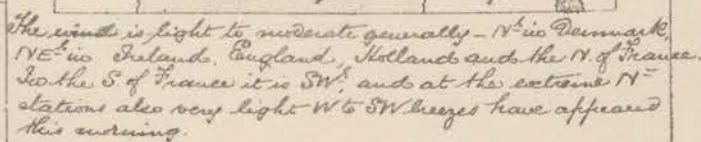 The wind is light to moderate generally – Nly in Denmark,
NEly in Ireland, England, Holland and the N. of France.
In the S. of France it is SWly, and at the extreme Nn
stations also very light W to SW breezes have appeared
this morning.